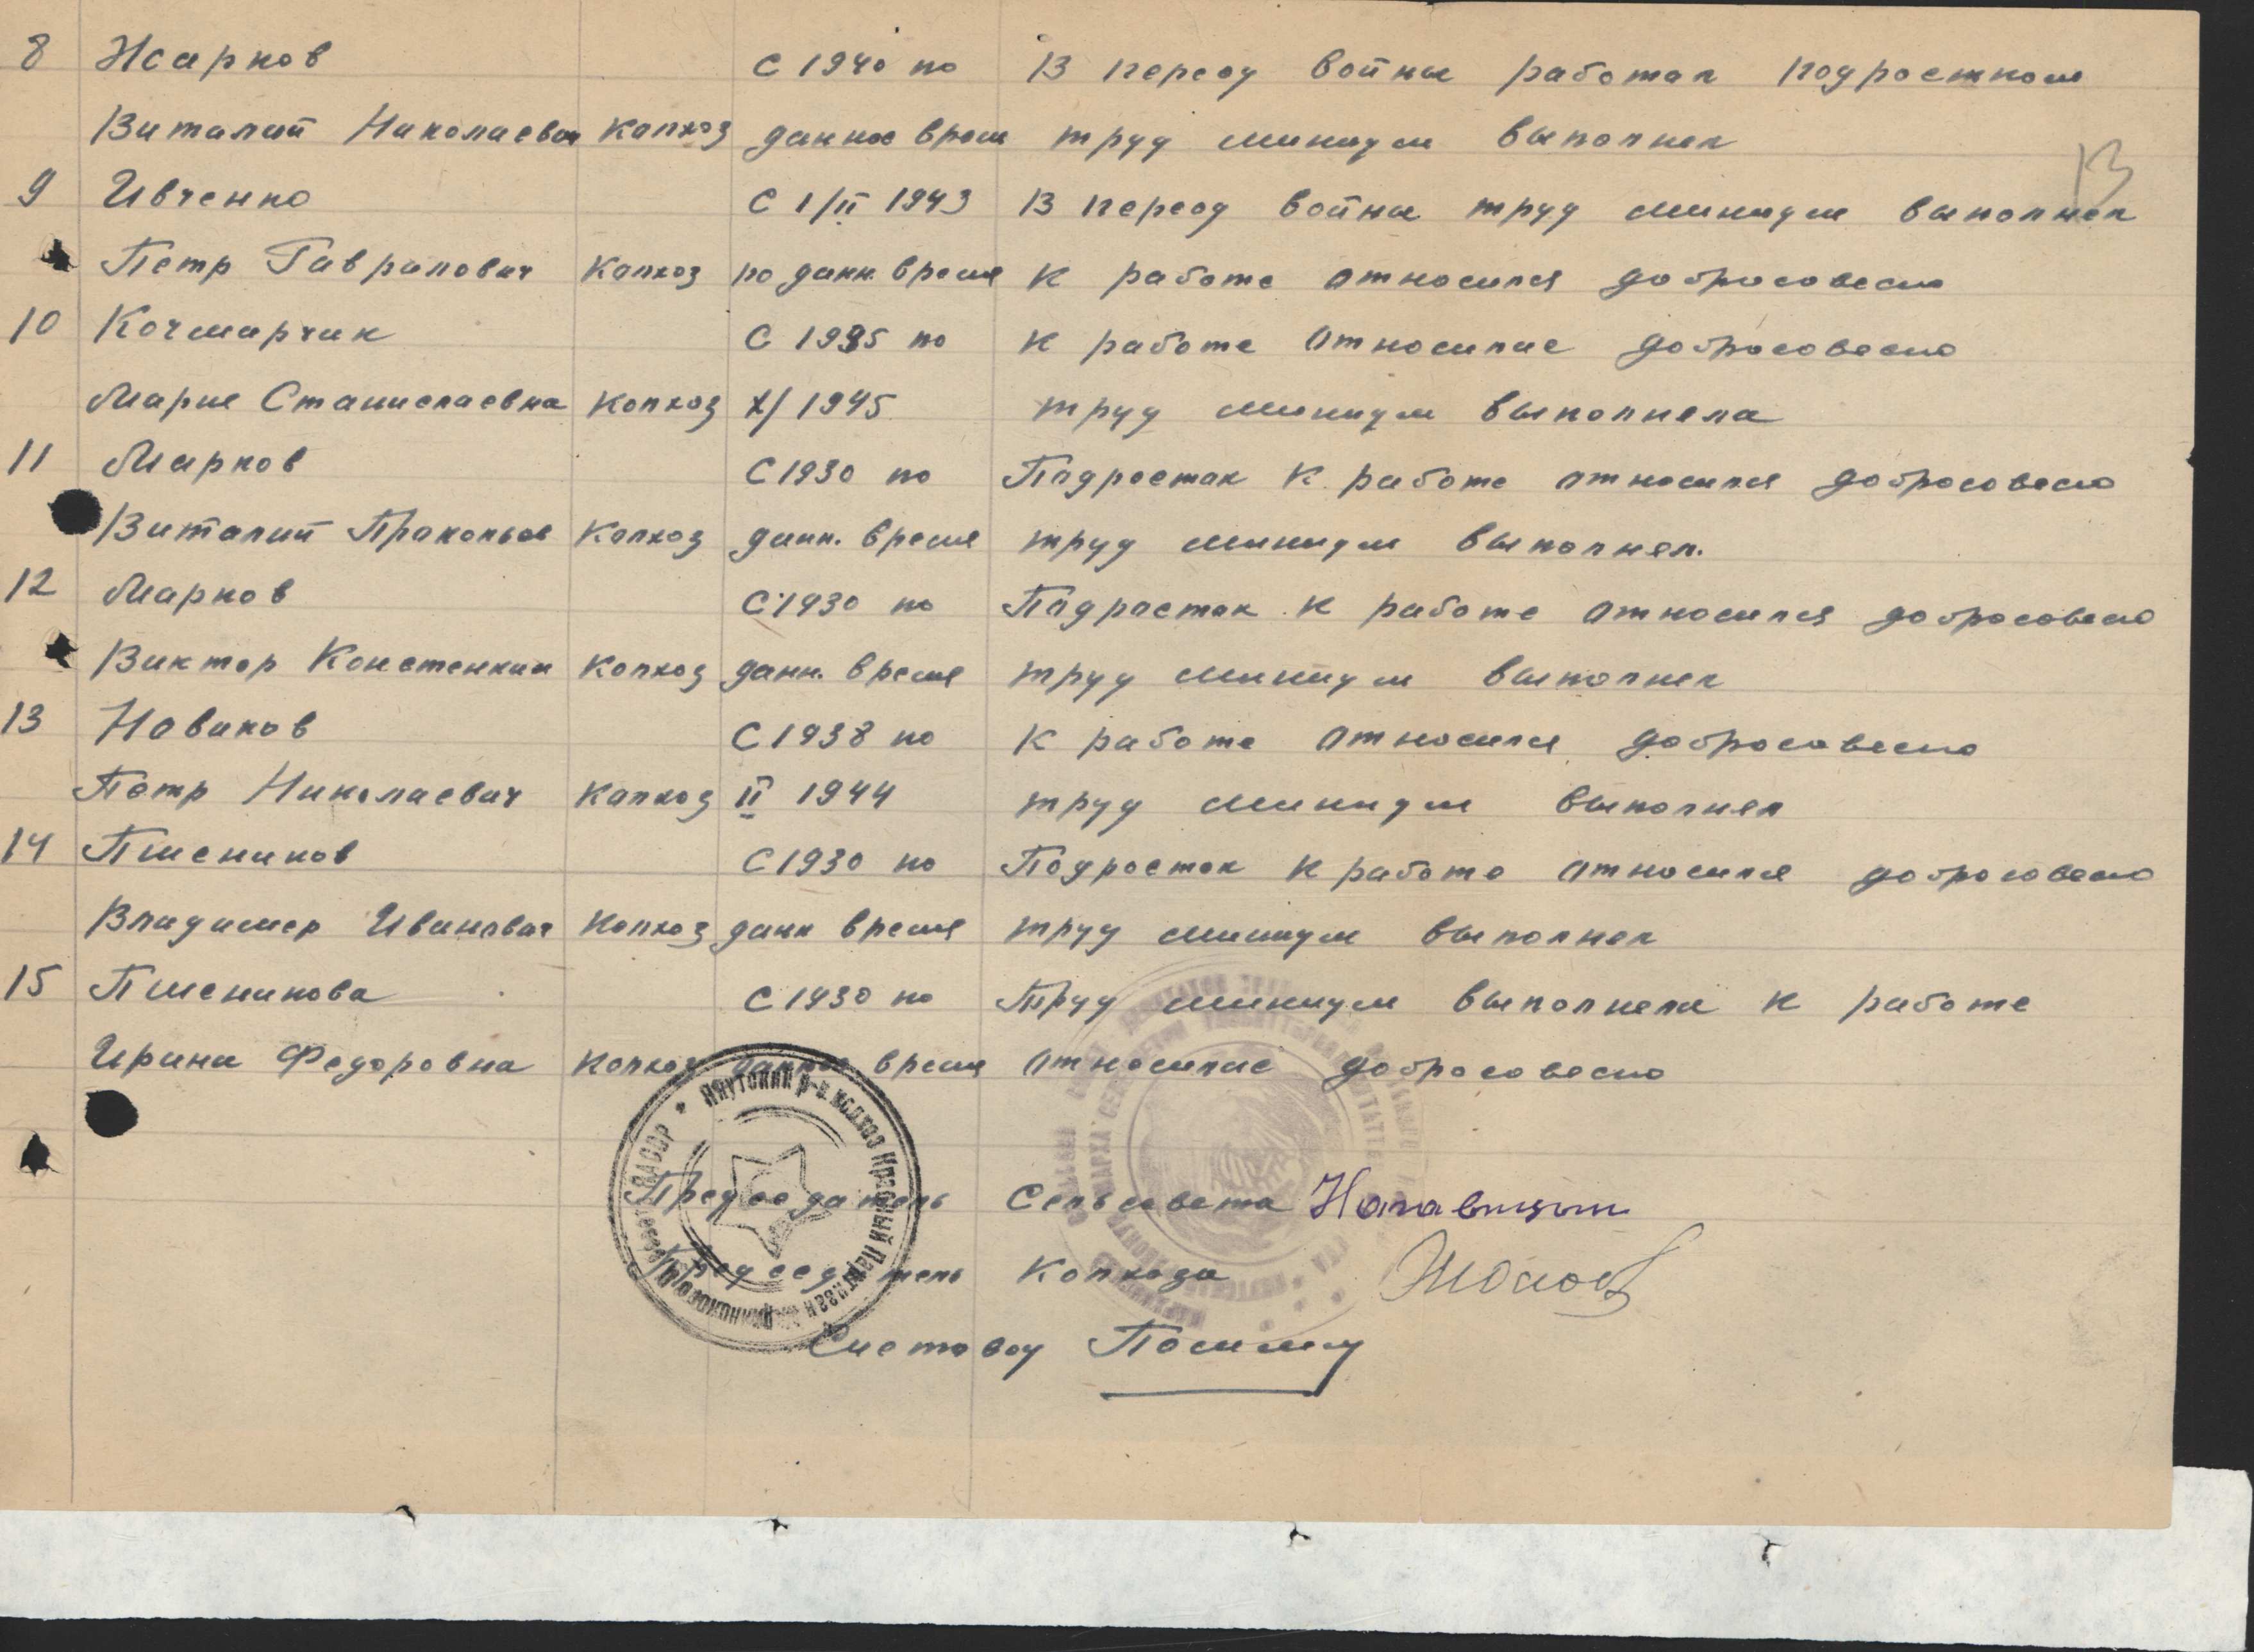 8 Жарков С 1940 по В период войны работал подростком
Виталий Николаевич колхоз данное врем труд минимум выполнял
13
9 Ивченко С 1/II 1943 В период войны труд минимум выполнял
Петр Гаврилович колхоз по данн. время к работе относился добросовесно
10 Кочмарчик С 1935 по к работе относилас добросовесно
Мария Станиславвна колхоз X/1945 труд минимум выполняла
11 Марков С 1930 по Подросток к работе относился добросовесно
Виталий Прокопьев колхоз данн. время труд минимум выполнял.
12 Марков С 1930 по Подросток к работе относился добросовесно
Виктор колхоз данн. время труд минимум выполнял
13 Новиков С 1938 по к работе относился добросовесно
Петр Николаевич колхоз II 1944 труд минимум выполнял
14 Пшеников С 1930 по Подросток к работе относился добросовесно
Владимир Иванович колхоз данн время труд минимум выполнял
15 Пшеникова С 1930 по Труд минимум выполняла к работе
Ирина Федоровна колхоз данное время относилас добросовесно
Якутский р-н колхоз Красный Партизан ЯАССР
Председатель Сельсовета
Председатель Колхоза
Счетовод